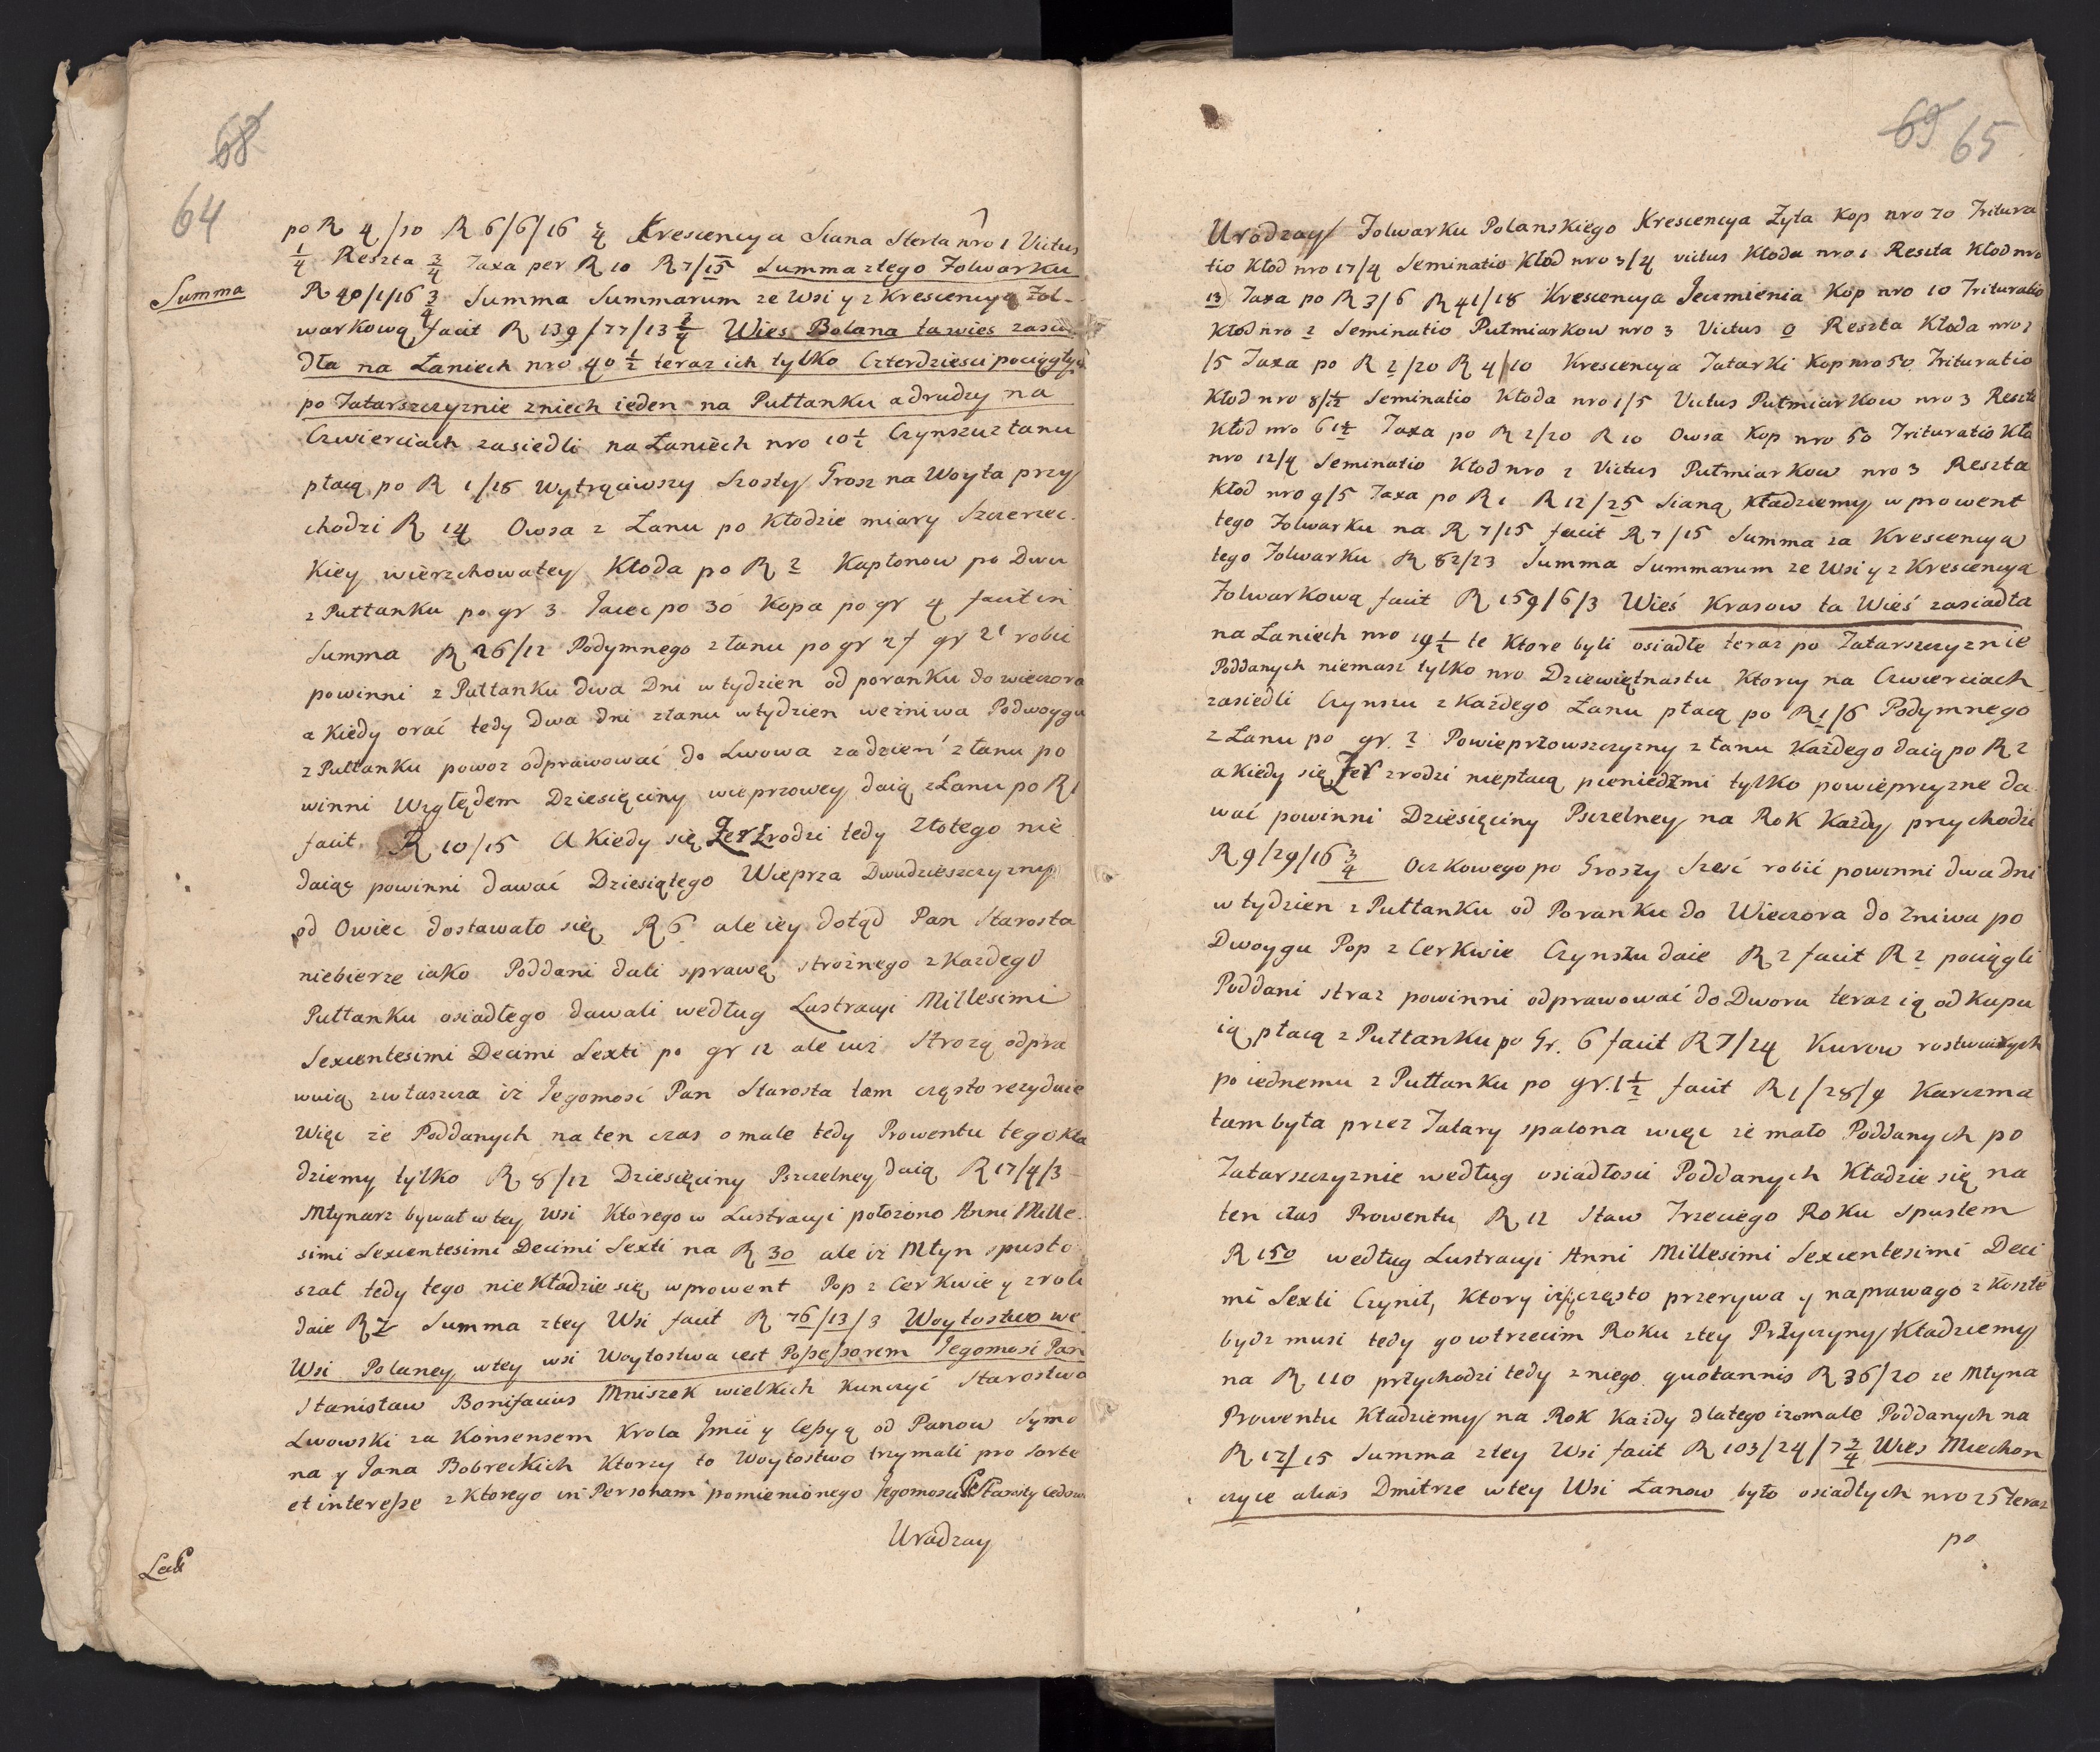 68
64
po R 4/10 R 6/6/16 1/4 Krescencya Siana Sterta nro 1 Victus
1/4 Reszta 3/4 Taxa per R 10 R 7/15 Summa ztego Folwarku
Summa
R 40/1/16 3/4 Summa Summarum ze Wsi y z Krescencyą Fol-
warkową facit R 139/77/13 3/4 Wies Bolana ta wies zasia
dła na Łaniech nro 40 1/2 teraz ich tylko Czterdziesci pociągłych
po Tatarszczyznie zniech ieden na Pułtanku a drudzy na
Czwierciach zasiedli na Łaniech nro 10 1/2 Czynszu z łanu
płacą po R 1/15 wytrąciwszy Szosty Grosz na Woyta przy
chodzi R 14 Owsa z Łanu po Kłodzie miary Szczerzec-
Kiey wierzchowatey Kłoda po R 2 Kapłonow po Dwu
z Pułtanku po gr 3 Jaiec po 30 Kopa po gr 4 facit in
Summa R 26/12 Podymnego z łanu po gr 2 f gr 21 robic
powinni z Pułtanku dwa Dni w tydzien od poranku do wieczora
a Kiedy orać tedy Dwa dni z łanu w tydzien we żniwa Podwoygu
z Pułtanku powoz odprawować do Lwowa za dzień z łanu po
winni Względem Dziesięciny wieprzowey daią z Łanu po R 1
facit R 10/15 A Kiedy się Żer Zrodzi tedy Złotego nie
daiąc powinni dawać Dziesiątego Wieprza Dwudzieszczyzny
od Owiec dostawało się R 6 ale iey dotąd Pan Starosta
niebierze iako Poddani dali sprawę strożnego z Każdego
Pułtanku osiadłego dawali według Lustracyi Millesimi
Sexcentesimi Decimi Sexti po gr 12 ale iuż Strożą odpra
wuią zwłaszcza iż Jegomość Pan Starosta tam często rezyduie
Więc że Poddanych na ten czas o male tedy Prowentu tego Kła
dziemy tylko R 8/12 Dziesięciny Pszczelney daią R 17/4/3
Młynarz bywał w tey Wsi Ktorego w Lustracyi położono Anni Mille-
simi Sexcentesimi Decimi Sexti na R 30 ale iż Młyn spusto
szał tedy tego nie Kładzie się w prowent Pop z Cerkwie y z roli
daie R 7 Summa z tey Wsi facit R 76/13/3 Woytostwo we
Wsi Polaney w tey wsi Woytostwa iest Possessorem Jegomość Pan
Stanisław Bonifacius Mniszek wielkich Kunczyć Starostwo
Lwowski za Konsensem Krola Jmci y Cessyą od Panow Symo
na y Jana Bobreckich Ktorzy to Woytostwo trzymali pro sorte
et interesse z Ktorego in Personam pomienionego Jegomosci Pstarosty Cedow
Urodzay
69 65
Urodzay Folwarku Polanskiego Krescencya Zyta Kop nro 70 Tritura
tio Kłod nro 17/4 Seminatio Kłod nro 3/4 victus Kłoda nro 1 Reszta Kłod nro
13 Taxa po R 3/6 R 41/18 Krescencya Jęczmienia Kop nro 10 Trituratio
Kłod nro 2 Seminatio Putmiarkow nro 3 Victus 0 Reszta Kłoda nro 1
/5 Taxa po R 2/20 R 4/10 Krescencya Tatarki Kop nro 50 Trituratio
Kłod nro 8/12 Seminatio Kłoda nro 1/5 Victus Putmiarkow nro 3 Reszta
Kłod nro 6 1/2 Taxa po R 2/20 R 10 Owsa Kop nro 50 Trituratio Kło
nro 12/4 Seminatio Kłod nro 2 Victus Putmiarkow nro 3 Reszta
Kłod nro 9/5 Taxa po R 1 R 12/25 Sianą Kładziemy w prowent
tego Folwarku na R 7/15 facit R 7/15 Summa za Krescencyą
tego Folwarku R 82/23 Summa Summarum ze Wsi y z Krescencyą
Folwarkową facit R 159/6/3 Wieś Krasow ta Wieś zasiadła
na Łaniech nro 19 1/2 te Ktore byli osiadłe teraz po Tatarszczyznie
Poddanych niemasz tylko nro Dziewiętnastu Ktorzy na Czwierciach
zasiedli Czynszu z Każdego Łanu płacą po R 1/6 Podymnego
z Łanu po gr. 2 Powieprzowszczyzny z łanu Każdego daią po R 2
a Kiedy się Żer zrodzi niepłacą pieniędzmi tylko powieprzyzne da
wać powinni Dziesięciny Pszczelney na Rok Każdy przychodzi
R 9/29/16 3/4 Oczkowego po Groszy Sześć robić powinni dwa dni
w tydzien z Pułtanku od Poranku do Wieczora do Żniwa po
Dwoygu Pop z Cerkwie Czynszu daie R 2 facit R 2 pociągli
Poddani straż powinni odprawować do Dworu teraz ią odkupu
ią płacą z Pułtanku po Gr. 6 facit R 7/24 Kurow rostwartych
po iednemu z Pułtanku po gr. 1 1/2 facit R 1/28/9 Karczma
tam była przez Tatary spalona więc że mało Poddanych po
Tatarszczyznie według osiadłosci Poddanych Kładzie się na
ten czas Prowentu R 12 Staw Trzeciego Roku Spustem
R 150 według Lustracyi Anni Millesimi Sexcentesimi Deci
mi Sexti Czynił, Ktory iż się często przerywa y naprawa go z Koszte
bydz musi tedy go w trzecim Roku z tey Przyczyny Kładziemy
na R 110 przychodzi tedy z niego quotannis R 36/20 ze Młyna
Prowentu Kładziemy na Rok Każdy dlatego iż o male Poddanych na
R 17/15 Summa z tey Wsi facit R 103/24/7 3/4 Wies Miechon
czyce alias Dmitrze w tey Wsi Łanow było osiadłych nro 25 teraz
po